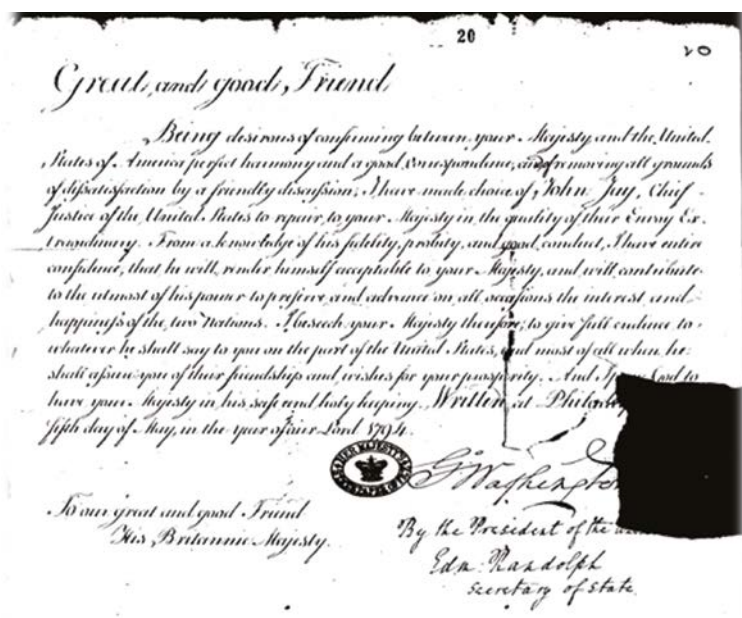 20
20
Great and good Friend
Being desirous of confirming between your Majesty and the United
States of America perfect harmony and a good correspondence, and of removing all grounds
of dissatisfaction by a friendly discussion; I have made choice of John Jay, Chief
Justice of the United States to repair to your Majesty in the quality of their Envoy Ex-
traordinary. From a knowledge of his fidelity, probity, and good conduct, I have entire
confidence, that he will render himself acceptable to your Majesty, and will contribute
to the utmost of his power to preserve and advance on all occasions the interest and
happiness of the two Nations. I beseech your Majesty therefore, to give full credence to
whatever he shall say to you on the part of the United States, and most of all when he
shall assure you of their friendship and wishes for your prosperity. And I pray God to
have your Majesty in his safe and holy keeping. Written at
fifth day of May, in the year of our Lord 1794.
HER MAJESTY'S
G Washington
To our great and good Friend
His Britannic Majesty.
By the President of the
Edm: Randolph
Secretary of State